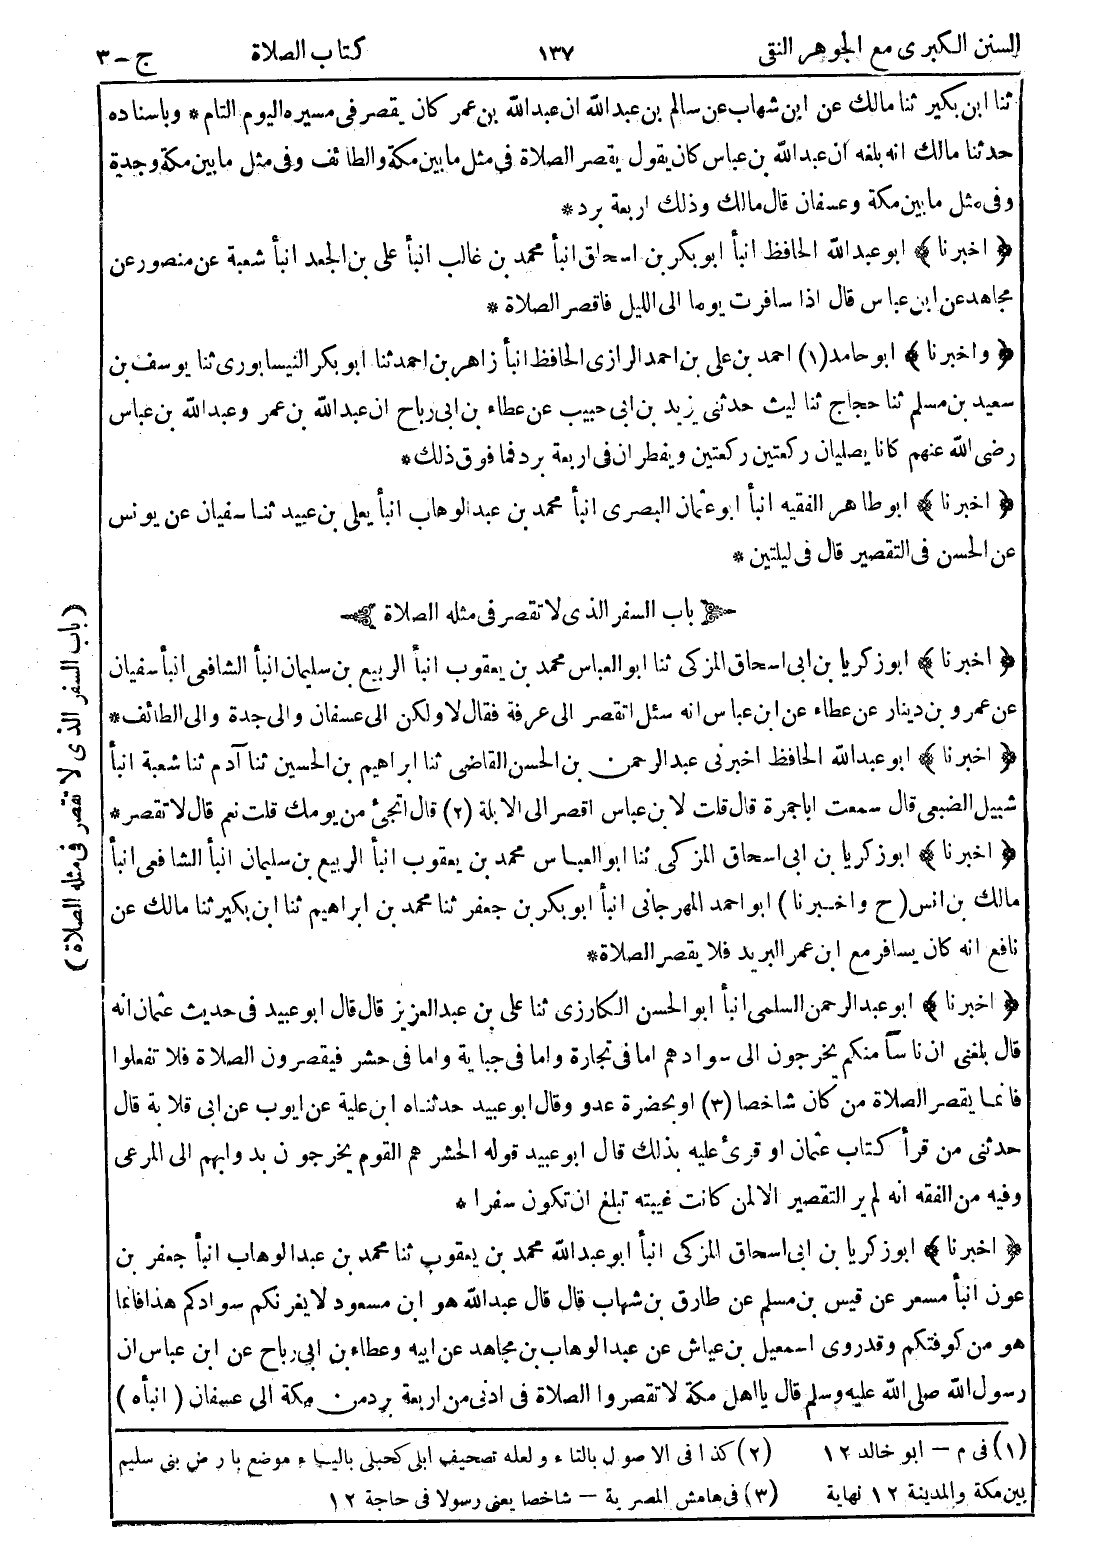 السنن الكبرى مع الجوهر النقى ١٣٧ كتاب الصلاة ج - ٣
ثنا ابن بكير ثنا مالك عن ابن شهاب عن سالم بن عبدالله ان عبدالله بن عمر كان يقصر فى مسيره اليوم التام * وباسناده
حدثنا مالك انه بلغه ان عبدالله بن عباس كان يقول يقصر الصلاة فى مثل ما بين مكة والطائف وفى مثل ما بين مكة وجدة
وفى مثل ما بين مكة وعسفان قال مالك وذلك اربعة برد *
﴿ اخبرنا ﴾ ابو عبدالله الحافظ انبأ ابو بكر بن اسحاق انبأ محمد بن غالب انبأ على بن الجعد انبأ شعبة عن منصور عن
مجاهد عن ابن عباس قال اذا سافرت يوما الى الليل فاقصر الصلاة *
﴿ واخبرنا ﴾ ابو حامد (١) احمد بن على بن احمد الرازى الحافظ انبأ زاهر بن احمد ثنا ابو بكر النيسابورى ثنا يوسف بن
سعيد بن مسلم ثنا حجاج ثنا ليث حدثنى يزيد بن ابى حبيب عن عطاء بن ابى رباح ان عبدالله بن عمر وعبدالله بن عباس
رضى الله عنهم كانا يصليان ركعتين ركعتين ويفطران فى اربعة برد فما فوق ذلك *
﴿ اخبرنا ﴾ ابو طاهر الفقيه انبأ ابو عثمان البصرى انبأ محمد بن عبدالوهاب انبأ يعلى بن عبيد ثنا سفيان عن يونس
عن الحسن فى التقصير قال فى ليلتين *
باب السفر الذى لا تقصر فى مثله الصلاة
﴿ اخبرنا ﴾ ابو زكريا بن ابى اسحاق المزكى ثنا ابو العباس محمد بن يعقوب انبأ الربيع بن سليمان انبأ الشافعى انبأ سفيان
عن عمرو بن دينار عن عطاء عن ابن عباس انه سئل اتقصر الى عرفة فقال لا ولكن الى عسفان والى جدة والى الطائف *
﴿ اخبرنا ﴾ ابو عبدالله الحافظ اخبرنى عبد الرحمن بن الحسن القاضى ثنا ابراهيم بن الحسين ثنا آدم ثنا شعبة انبأ
شبيل الضبعى قال سمعت ابا جمرة قال قلت لا بن عباس اقصر الى الابلة (٢) قال اتجئ من يومك قلت نعم قال لا تقصر *
﴿ اخبرنا ﴾ ابو زكريا بن ابى اسحاق المزكى ثنا ابو العباس محمد بن يعقوب انبأ الربيع بن سليمان انبأ الشافعى انبأ
مالك بن انس (ح واخبرنا) ابو احمد المهرجانى انبأ ابو بكر بن جعفر ثنا محمد بن ابراهيم ثنا ابن بكير ثنا مالك عن
نافع انه كان يسافر مع ابن عمر البريد فلا يقصر الصلاة *
﴿ اخبرنا ﴾ ابو عبدالرحمن السلمى انبأ ابو الحسن الكارزى ثنا على بن عبدالعزيز قال قال ابو عبيد فى حديث عثمان انه
قال بلغنى ان ناسا منكم يخرجون الى سوادهم اما فى تجارة واما فى جباية واما فى حشر فيقصرون الصلاة فلا تفعلوا
فانما يقصر الصلاة من كان شاخصا (٣) او بحضرة عدو وقال ابو عبيد حدثناه ابن علية عن ايوب عن ابى قلابة قال
حدثنى من قرأ كتاب عثمان او قرئ عليه بذلك قال ابو عبيد قوله الحشر هم القوم يخرجون بدوابهم الى المرعى
وفيه من الفقه انه لم ير التقصير الا لمن كانت غيبته تبلغ ان تكون سفرا *
﴿ اخبرنا ﴾ ابو زكريا بن ابى اسحاق المزكى انبأ ابو عبدالله محمد بن يعقوب ثنا محمد بن عبدالوهاب انبأ جعفر بن
عون انبأ مسعر عن قيس بن مسلم عن طارق بن شهاب قال قال عبدالله هو ابن مسعود لا يغرنكم سوادكم هذا فانما
هو من كوفتكم وقد روى اسمعيل بن عياش عن عبدالوهاب بن مجاهد عن ابيه وعطاء بن ابى رباح عن ابن عباس ان
رسول الله صلى الله عليه وسلم قال يا اهل مكة لا تقصروا الصلاة فى ادنى من اربعة برد من مكة الى عسفان (انبأه)
(١) فى م - ابو خالد ١٢ (٢) كذا فى الاصول بالتاء ولعله تصحيف ابلى كحبلى بالياء موضع بارض بنى سليم
بين مكة والمدينة ١٢ نهاية (٣) فى هامش المصرية - شاخصا يعنى رسولا فى حاجة ١٢
(باب السفر الذى لا تقصر فى مثله الصلاة)